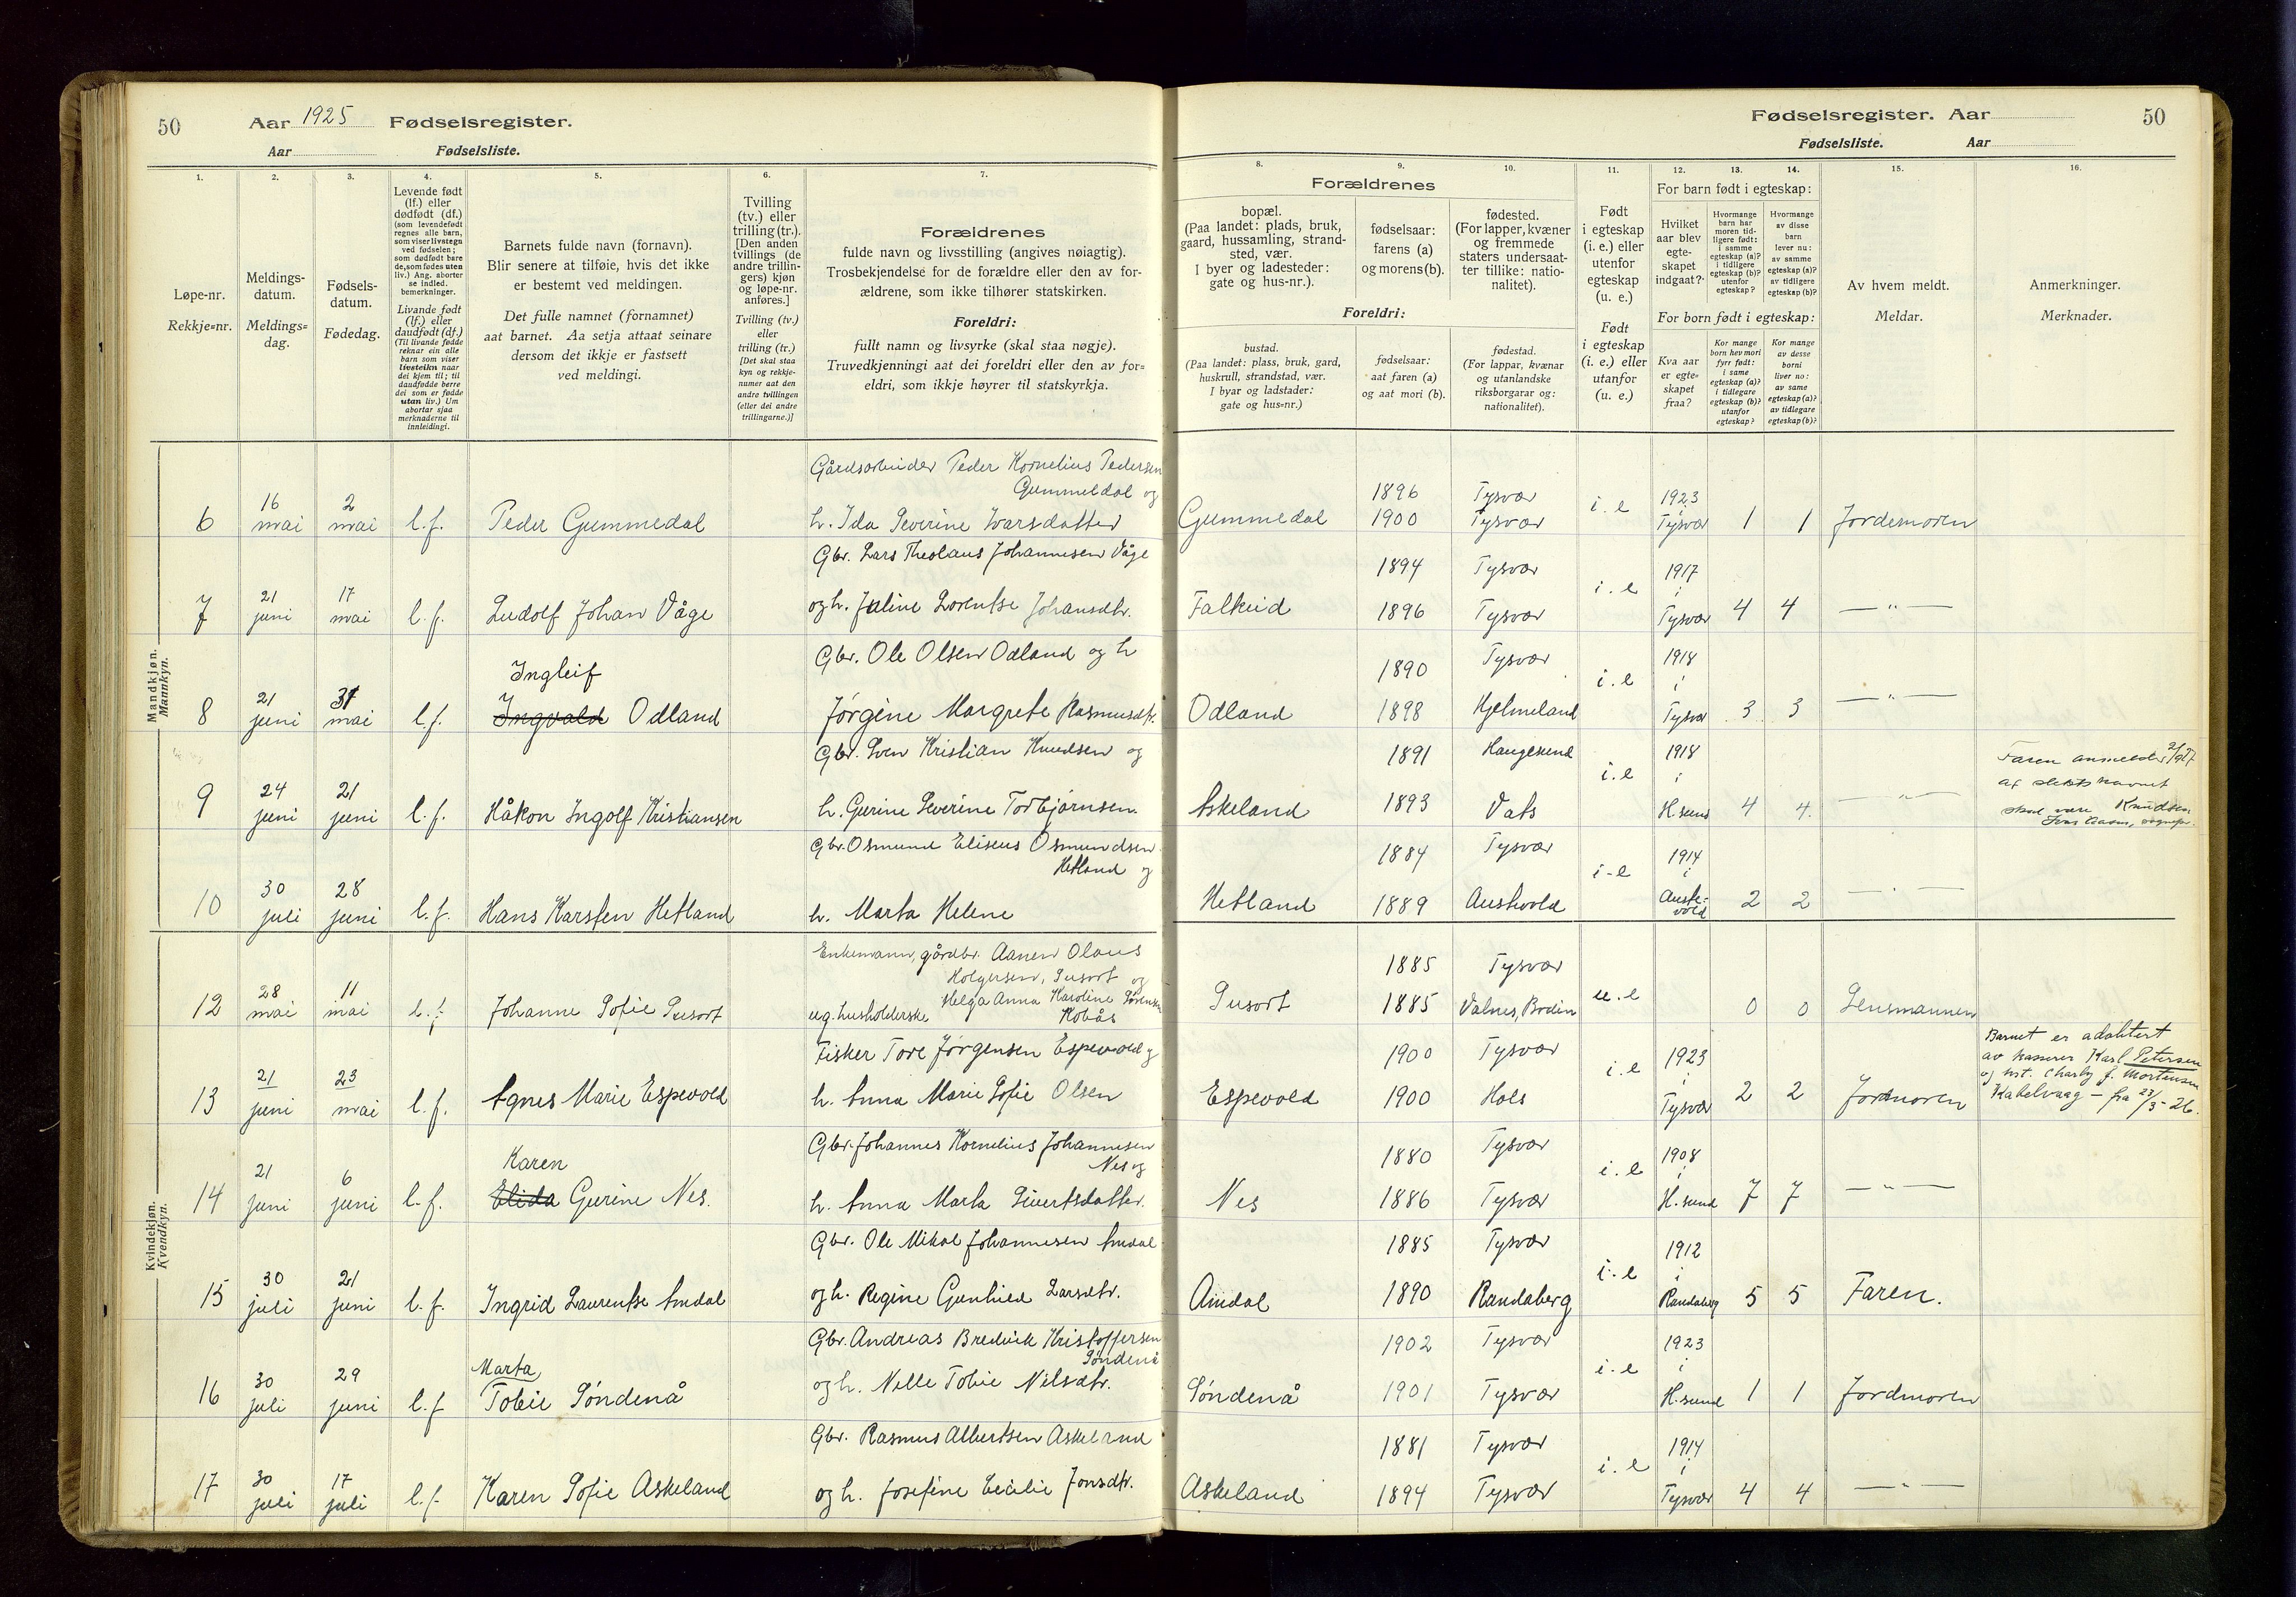 50 Aar 1925 Fødselsregister.
Aar Fødselsliste.
Fødselsregister. Aar 50
Fødselsliste. Aar
1. 2. 3. 4. 5. 6. 7.
Løpe-nr.
Rekkje=nr.
Meldings-
datum.
Meldings=
dag.
Fødsels-
datum.
Fødedag.
Levende født
(lf.) eller
dødfødt (df.)
(som levendefødt
regnes alle barn,
som viser livstegn
ved fødselen;
som dødfødt bare
de, som fødes uten
liv.) Ang. aborter
se indled.
bemerkninger.
Livande født
(lf.) eller
daudfødt (df.)
(Til livande fødde
reknar ein alle
barn som viser
livsteikn naar
dei kjem til; til
daudfødde berre
dei som er fødde
utan liv.) Um
abortar sjaa
merknaderne til
innleidingi.
Barnets fulde navn (fornavn).
Blir senere at tilføie, hvis det ikke
er bestemt ved meldingen.
Det fulle namnet (fornamnet)
aat barnet. Aa setja attaat seinare
dersom det ikkje er fastsett
ved meldingi.
Tvilling
(tv.) eller
trilling (tr.).
[Den anden
tvillings (de
andre trillin-
gers) kjøn
og løpe-nr.
anføres.]
Tvilling (tv.)
eller
trilling (tr.)
[Det skal staa
kyn og rekkje-
numer aat den
andre tvillingen
(eller dei andre
trillingarne.)]
Forældrenes
fulde navn og livsstilling (angives nøiagtig).
Trosbekjendelse for de forældre eller den av for-
ældrene, som ikke tilhører statskirken.
Foreldri:
fullt namn og livsyrke (skal staa nøgje).
Truvedkjenningi aat dei foreldri eller den av for=
eldri, som ikkje høyrer til statskyrkja.
8. 9. 10. 11. 12. 13. 14. 15. 16.
Forældrenes
bopæl.
(Paa landet: plads, bruk,
gaard, hussamling, strand-
sted, vær.
I byer og ladesteder:
gate og hus-nr.).
fødselsaar:
farens (a)
og morens (b).
fødested.
(For lapper, kvæner
og fremmede
staters undersaat-
ter tillike: natio-
nalitet).
Foreldri:
bustad.
(Paa landet: plass, bruk, gard,
huskrull, strandstad, vær.
I byar og ladstader:
gate og hus-nr.)
fødselsaar:
aat faren (a)
og aat mori (b).
fødestad.
(For lappar, kvænar
og utanlandske
riksborgarar og:
nationalitet).
Født
i egteskap
(i. e.) eller
utenfor
egteskap
(u. e.)
Født
i egteskap
(i. e.) eller
utanfor
(u. e.)
For barn født i egteskap:
Hvilket
aar blev
egte-
skapet
indgaat?
Hvormange
barn har
moren tid-
ligere født:
i samme
egteskap (a)?
i tidligere
egteskap (b)?
utenfor
egteskap?
Hvormange
av disse
barn
lever nu:
av samme
egteskap (a)?
av tidligere
egteskap (b)?
For born født i egteskap:
Kva aar
er egte-
skapet
fraa?
Kor mange
born hev mori
fyrr født:
i same
egteskap (a)?
i tidlegare
egteskap (b)?
utanfor
egteskap?
Kor mange
av desse
borni
liver no:
av same
egteskap (a)?
av tidlegare
egteskap (b)?
Av hvem meldt.
Meldar.
Anmerkninger.
Merknader.
Mandkjøn.
Mannkyn.
Gårdsarbeider Peder Kornelius Pedersen
Gummedal og
6 16 mai 2 mai l.f. Peder Gummedal h. Ida Severine Ivarsdatter Gummedal 1896 1900 Tysvær Tysvær i.e 1923 i Tysvær 1 1 Jordemoren
Gbr. Lars Theolaus Johannesen Våge
7 21 juni 17 mai l.f. Ludolf Johan Våge og h. Juline Lorentse Johansdtr. Falkeid 1894 1896 Tysvær Tysvær i.e 1917 i Tysvær 4 4 — " —
Gbr. Ole Olsen Odland og h
Ingleif
8 21 juni 31 mai l.f. Ingvald Odland Jørgine Margrete Rasmusdtr. Odland 1890 1898 Tysvær Hjelmeland i.e 1918 i Tysvær 3 3 — " —
Gbr. Sven Kristian Knudsen og
9 24 juni 21 juni l.f. Håkon Ingolf Kristiansen h. Gurine Severine Torbjørnsen. Askeland 1891 1893 Haugesund Vats i.e 1918 i H.sund 4 4. — " —
Faren anmeldte
at slektsnavnet
skal være Knudsen.
Gbr. Osmund Eliseus Osmundsen
Hetland og
10 30 juli 28 juni l.f. Hans Karsten Hetland h. Marta Helene Hetland 1884 1889 Tysvær Austevold i-e 1914 i Auste-vold 2 2 — " —
Kvindekjøn.
Kvendkyn.
Enkemann, gårdbr. Aanen Olaus
Holgersen, Susort og
12 28 mai 11 mai l.f. Johanne Sofie Susort ug. husholderske Helga Anna Karoline Sørensen Kobås Susort 1885 1885 Tysvær Valnes, Bodin u.e 0 0 Lensmannen
Fisker Tore Jørgensen Espevold og
13 21 juni 23 mai l.f. Agnes Marie Espevold h. Anna Marie Sofie Olsen Espevold 1900 1900 Tysvær Hols i.e 1923 i Tysvær 2 2 Jordmoren
Barnet er adoptert
av kasserer Karl Petersen
og hst. Charly f. Mortensen
Kabelvaag – fra 23/3-26.
Gbr. Johannes Kornelius Johannesen
Nes og
Karen
14 21 juni 6 juni l.f. Elida Gurine Nes. h. Anna Marta Sivertsdatter. Nes 1880 1886 Tysvær Tysvær i.e 1908 i H.sund 7 7 — " —
Gbr. Ole Mikal Johannesen Amdal
15 30 juli 21 juni l.f. Ingrid Laurentse Amdal og h. Regine Gunhild Larsdtr. Amdal 1885 1890 Tysvær Randaberg i.e 1912 i Randaberg 5 5 Faren.
Gbr. Andreas Bredvik Kristoffersen
Søndenå
Marta
16 30 juli 29 juni l.f Tobie Søndenå og h. Nelle Tobie Nilsdtr. Søndenå 1902 1901 Tysvær Tysvær i.e 1923 i H.sund 1 1 Jordmoren
Gbr. Rasmus Albertsen Askeland
17 30 juli 17 juli l.f. Karen Sofie Askeland og h. Josefine Cecilie Jonsdtr. Askeland 1881 1894 Tysvær Tysvær i.e 1914 i Tysvær 4 4 — " —